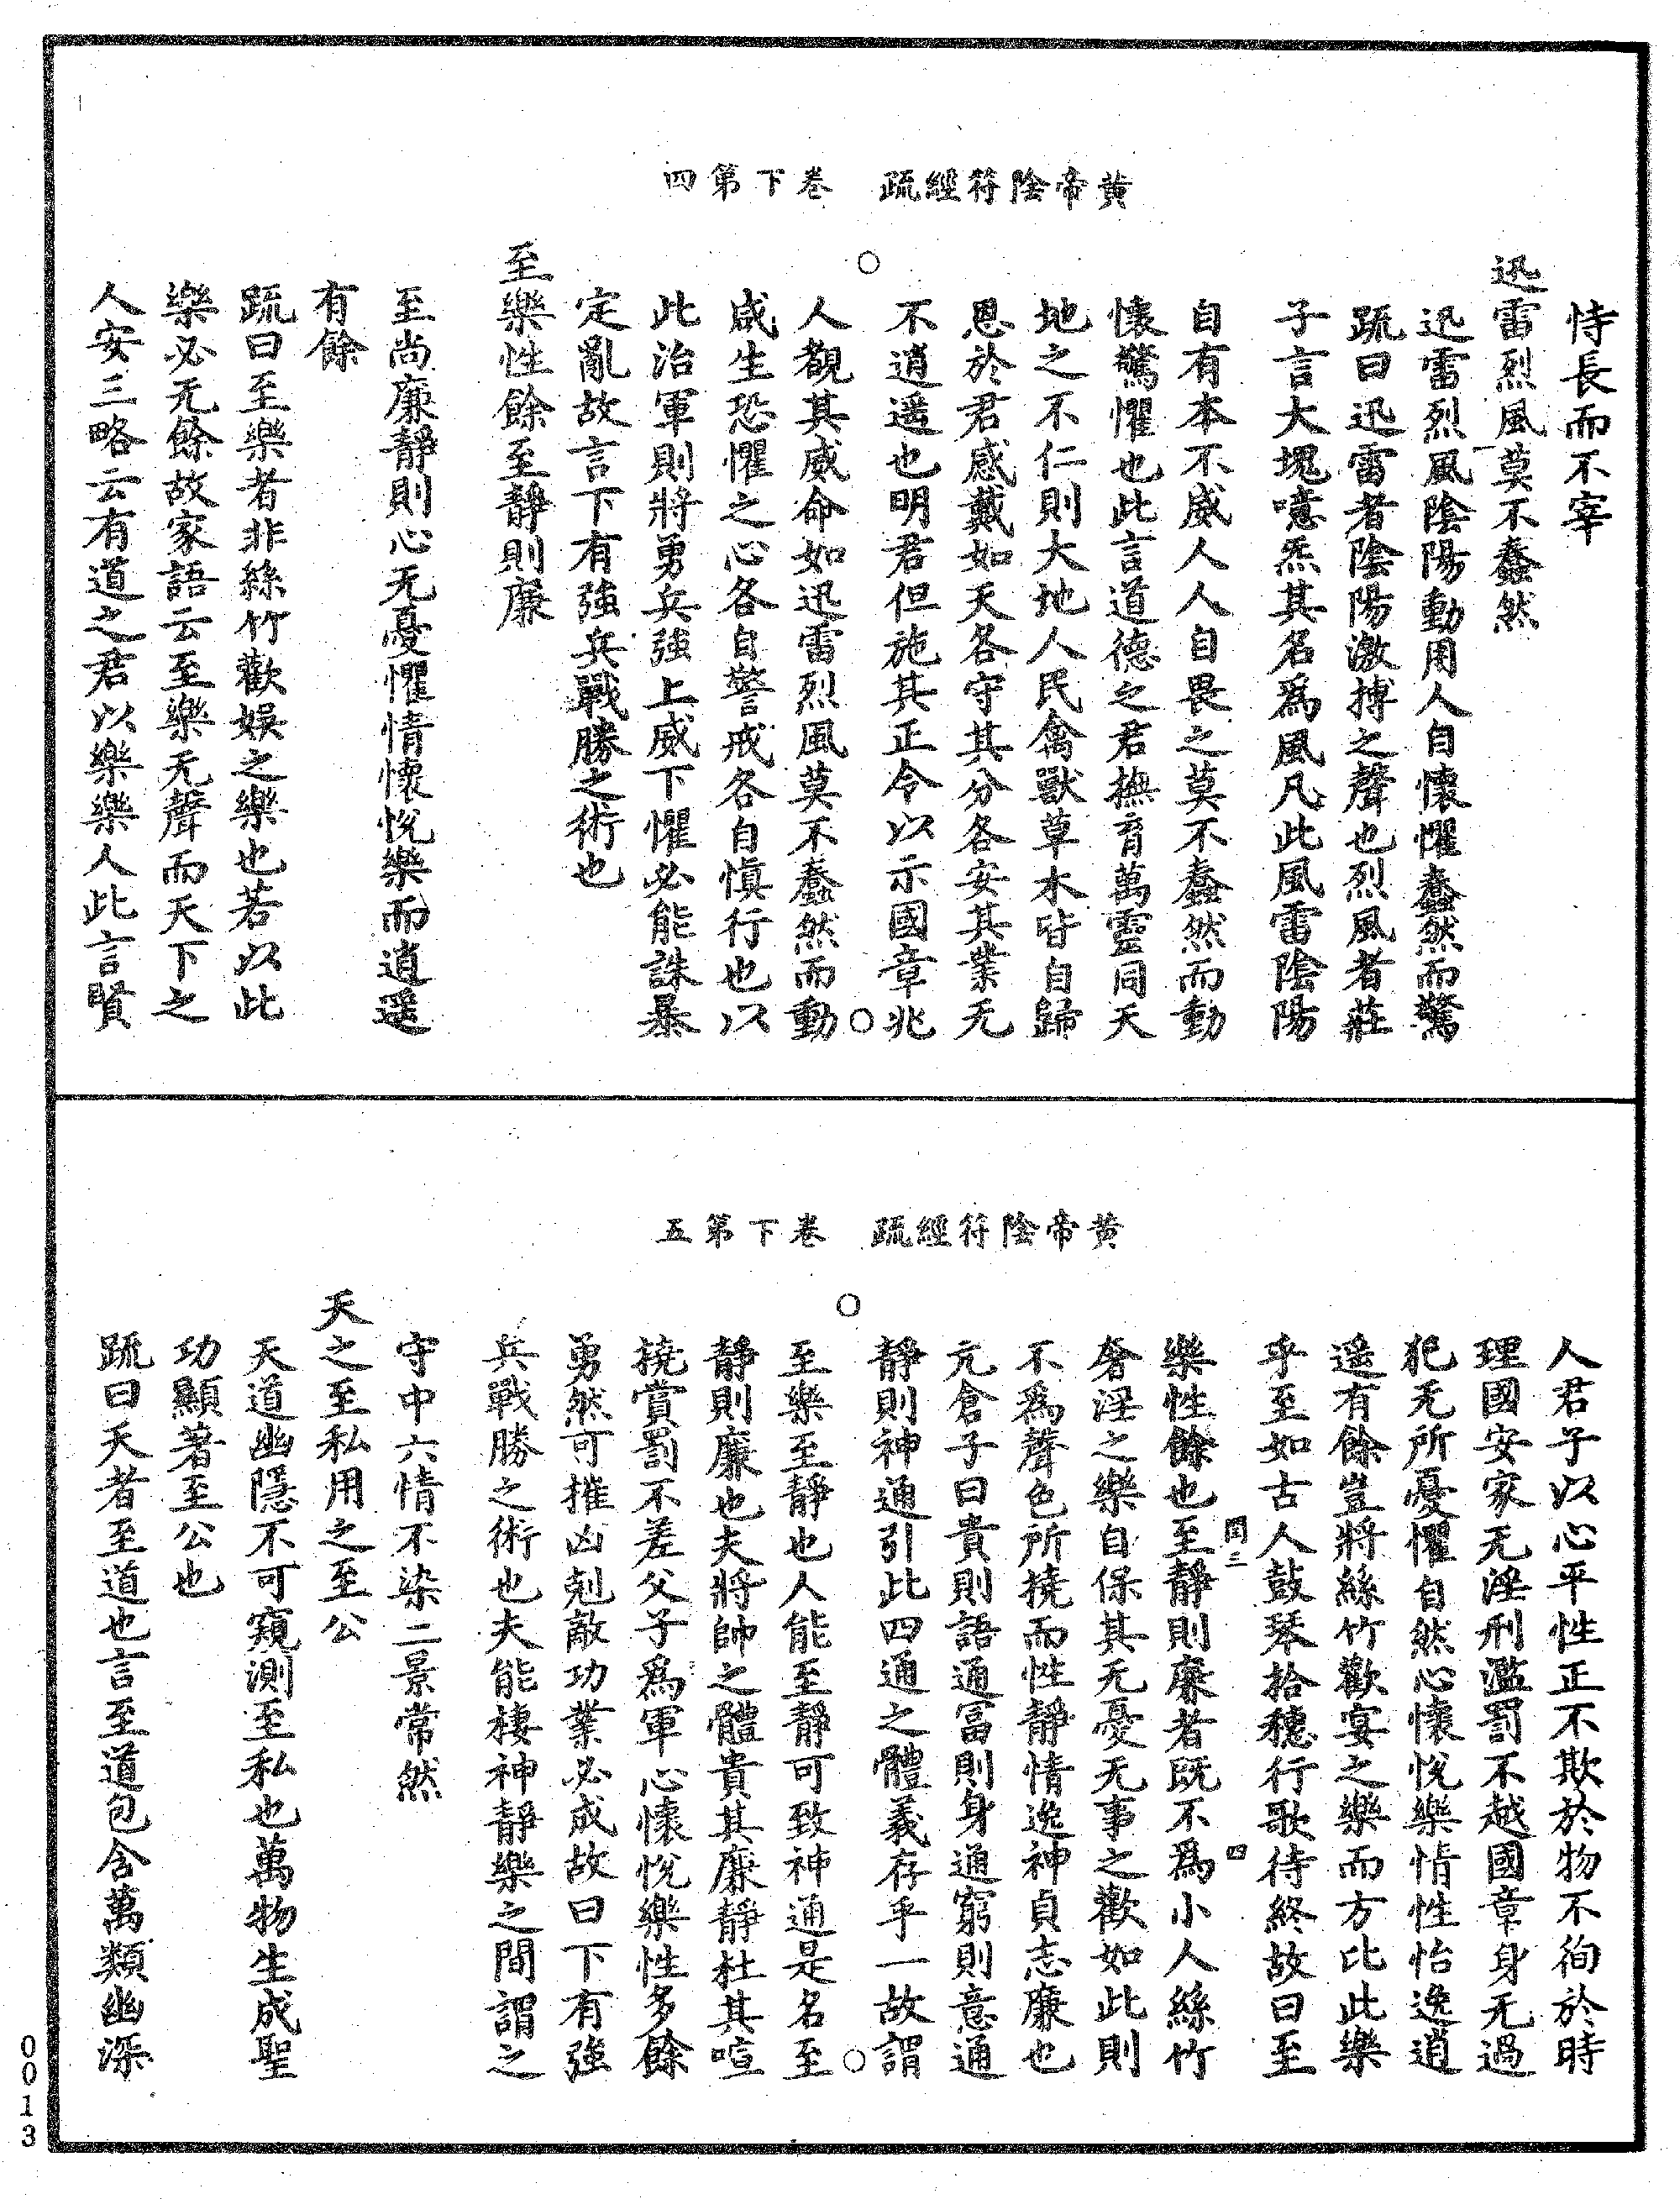 黃帝陰符經疏　卷下第四
恃長而不宰
迅雷烈風莫不蠢然
迅雷烈風陰陽動用人自懷懼蠢然而驚
疏曰迅雷者陰陽激搏之聲也烈風者莊
子言大塊噫炁其名爲風凡此風雷陰陽
自有本不威人人自畏之莫不蠢然而動
懷驚懼也此言道德之君撫育萬靈同天
地之不仁則大地人民禽獸草木皆自歸
恩於君感戴如天各守其分各安其業无
不逍遥也明君但施其正令以示國章兆
人覩其威命如迅雷烈風莫不蠢然而動
咸生恐懼之心各自警戒各自慎行也以
此治軍則將勇兵強上威下懼必能誅暴
定亂故言下有強兵戰勝之術也
至樂性餘至靜則廉
至尚廉靜則心无憂懼情懷悅樂而逍遥
有餘
疏曰至樂者非絲竹歡娛之樂也若以此
樂必无餘故家語云至樂无聲而天下之
人安三略云有道之君以樂樂人此言賢
黃帝陰符經疏　卷下第五
人君子以心平性正不欺於物不徇於時
理國安家无淫刑濫罰不越國章身无過
犯无所憂懼自然心懷悅樂情性怡逸逍
遥有餘豈將絲竹歡宴之樂而方比此樂
乎至如古人鼓琴拾穗行歌待終故曰至
閏二　四
樂性餘也至靜則廉者既不爲小人絲竹
奢淫之樂自保其无憂无事之歡如此則
不爲聲色所撓而性靜情逸神貞志廉也
亢倉子曰貴則語通富則身通窮則意通
靜則神通引此四通之體義存乎一故謂
至樂至靜也人能至靜可致神通是名至
靜則廉也夫將帥之體貴其廉靜杜其喧
撓賞罰不差父子爲軍心懷悅樂性多餘
勇然可摧凶剋敵功業必成故曰下有強
兵戰勝之術也夫能棲神靜樂之間謂之
守中六情不染二景常然
天之至私用之至公
天道幽隱不可窺測至私也萬物生成聖
功顯著至公也
疏曰天者至道也言至道包含萬類幽深
0013